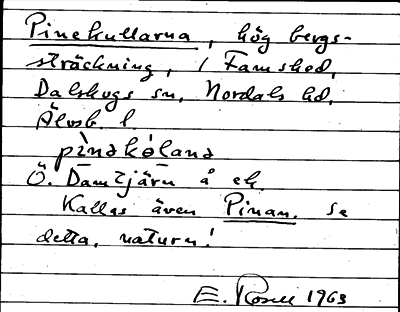 Pinekullarna, hög bergs-
sträckning, i Famshed,
Dalskogs sn, Nordals hd,
Älvsb. l.
pìnəkó̤lanə
Ö. Damtjärn å ek.
Kallas även Pinan. Se
detta, naturn!
E. Rosell 1963